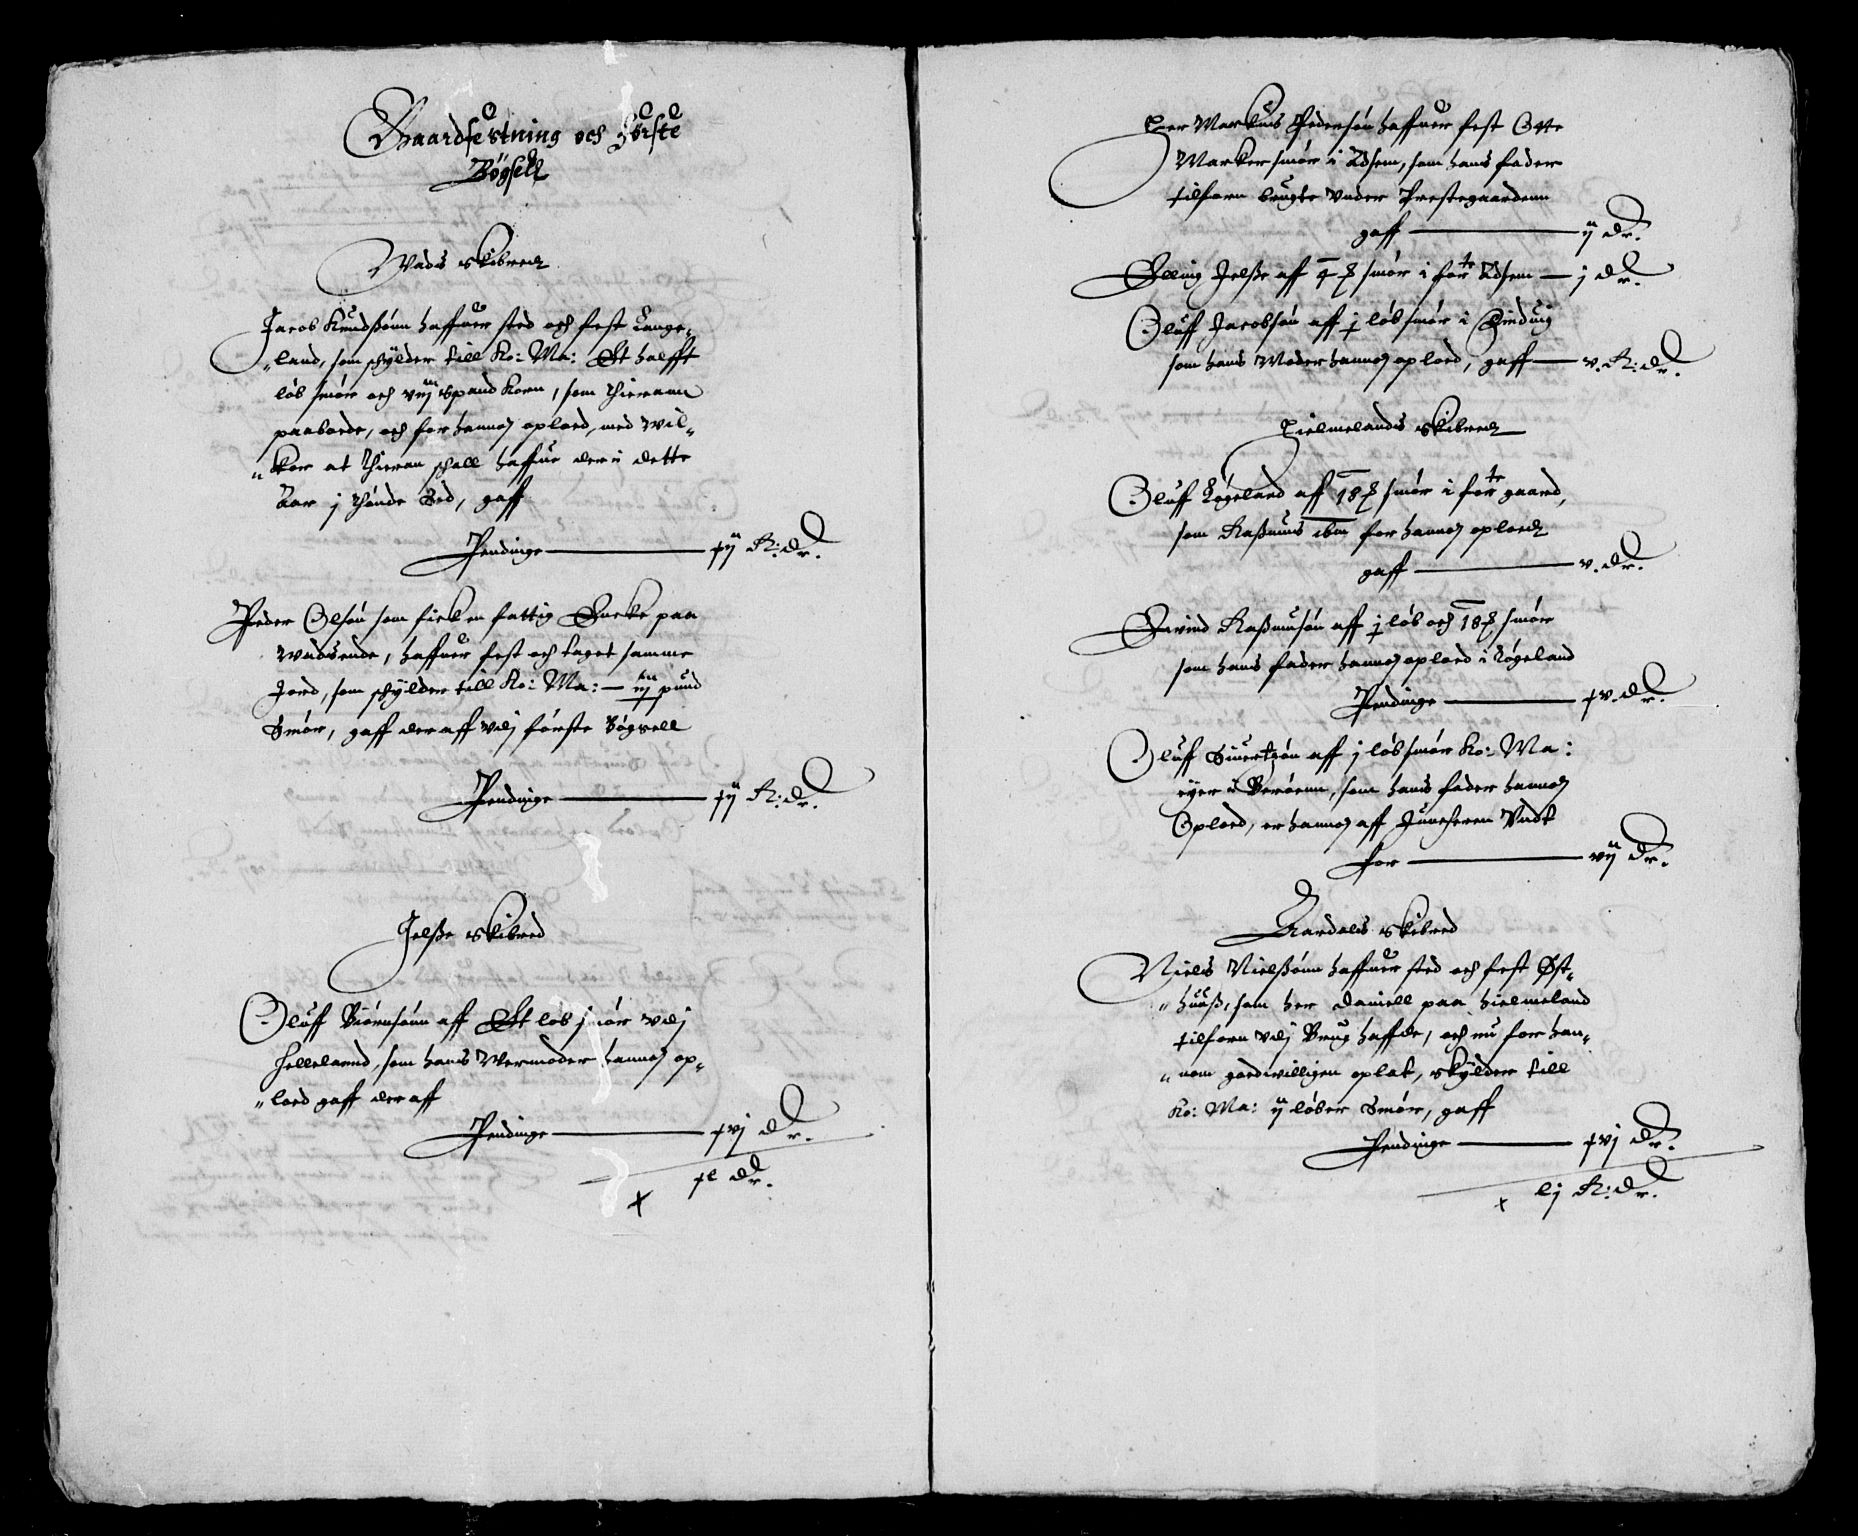 Gaardfestning och Förste
Bögsell
Wads Skibred
Jacob Knudßönn haffuer sted och fest Lange„
„land, som schylder till Ko: Ma: Et halfft
löb smör och viij Spand Korn, som Thieramn
paaboede, och for hannom oploed, med wil„
„kor at Thieran schall haffue der i dette
Aar j Thönde Sed, gaff
Pendinge — xij R: dr.
Peder Olsön som fick en fattig Encke paa
Wadsende, haffuer fest och taget samme
Jord, som schylder till Ko: Ma: — iij pund
Smör, gaff der aff vdj förste Bögsell
Pendinge — xij R: dr.
Jelße Skibred
Oluff Biörnsönn aff Et löb smör vdj
Helleland, som hans Wermoder hannom op„
„loed gaff der aff
Pendinge — xvj dr.
xl dr.
Her Markus Pedersön haffuer fest Otte
Marker smör i Adsem, som hans fader
tilforn brugte vnder Prestegaardenn
gaff — ij dr.
Elling Jelße aff 4 ℔ smör i forte Adsem — j dr.
Oluff Jacobsön aff j löb smör i Einduig
som hans Moder hannom oploed, gaff — v. R: dr.
Hielmelands Skibred
Oluff Tögeland aff 18 ℔ smör i forte gaard,
som Raßmus ibm for hannom oploed
gaff — v. dr.
Eivind Raßmusön aff j löb och 18 ℔ smör
som hans fader hannom oploed i Tögeland
Pendinge — xv. dr.
Oluff Siuertzön aff j löb smör Ko: Ma:
eyer i Beröenn, som hans fader hannom
Oploed, er hannom aff Junckeren Vndt
for — vij dr.
Aardals Skibred
Niels Nielßönn haffuer sted och fest Øst„
„huuß, som her Daniell paa Hielmeland
tilforn vdj Brug haffde, och nu for han„
„nom goedwilligen oplat, skylder till
Ko: Ma: ij löber Smör, gaff
Pendinge — xvj dr.
lj R: dr.